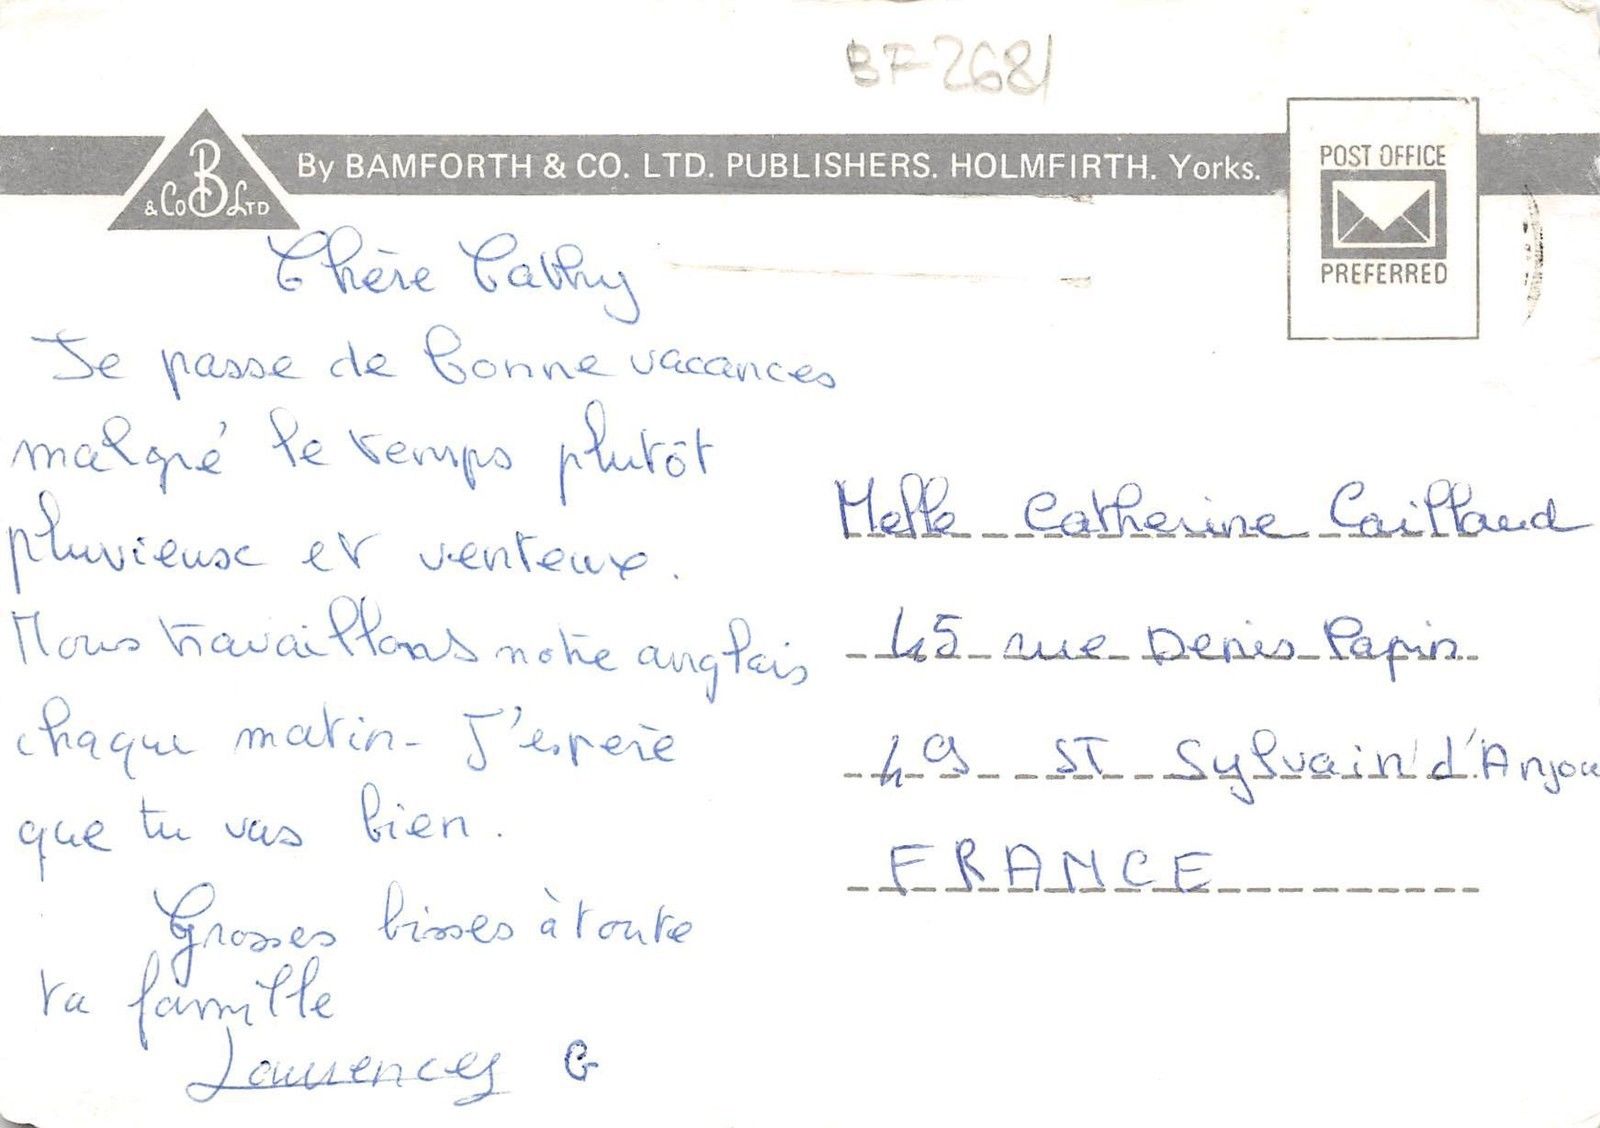 BF-2681
B & Co LTD
By BAMFORTH & CO. LTD. PUBLISHERS. HOLMFIRTH. Yorks.
POST OFFICE
PREFERRED
Chère Cathy
Je passe de bonne vacances
malgré le temps plutôt
pluvieux et venteux.
Nous travaillons notre anglais
chaque matin - J'espère
que tu vas bien.
Grosses bisses à toute
ta famille
Laurence G
Melle Catherine Caillaud
45 rue Denis Papin
49 ST Sylvain d'Anjou
FRANCE